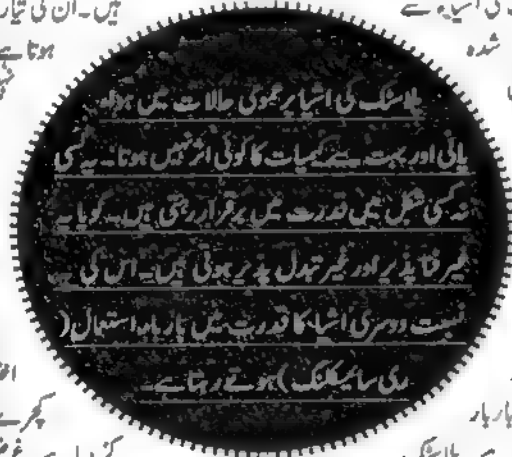 ہیں۔ان کی تیار
ہوتا ہے
شدہ
پلاسٹک کی اشیا پر عمومی حالات میں ہوا،
پانی اور بہت سے کیمیات کا کوئی اثر نہیں ہوتا۔ یہ کسی
نہ کسی شکل میں قدرت میں برقرار رہتی ہیں۔ گویا یہ
غیر فنا پذیر اور غیر تبدل پذیر ہوتی ہیں۔ اس کی
نسبت دوسری اشیا کا قدرت میں بار بار استعمال (
ری سائیکلنگ) ہوتے رہتا ہے۔